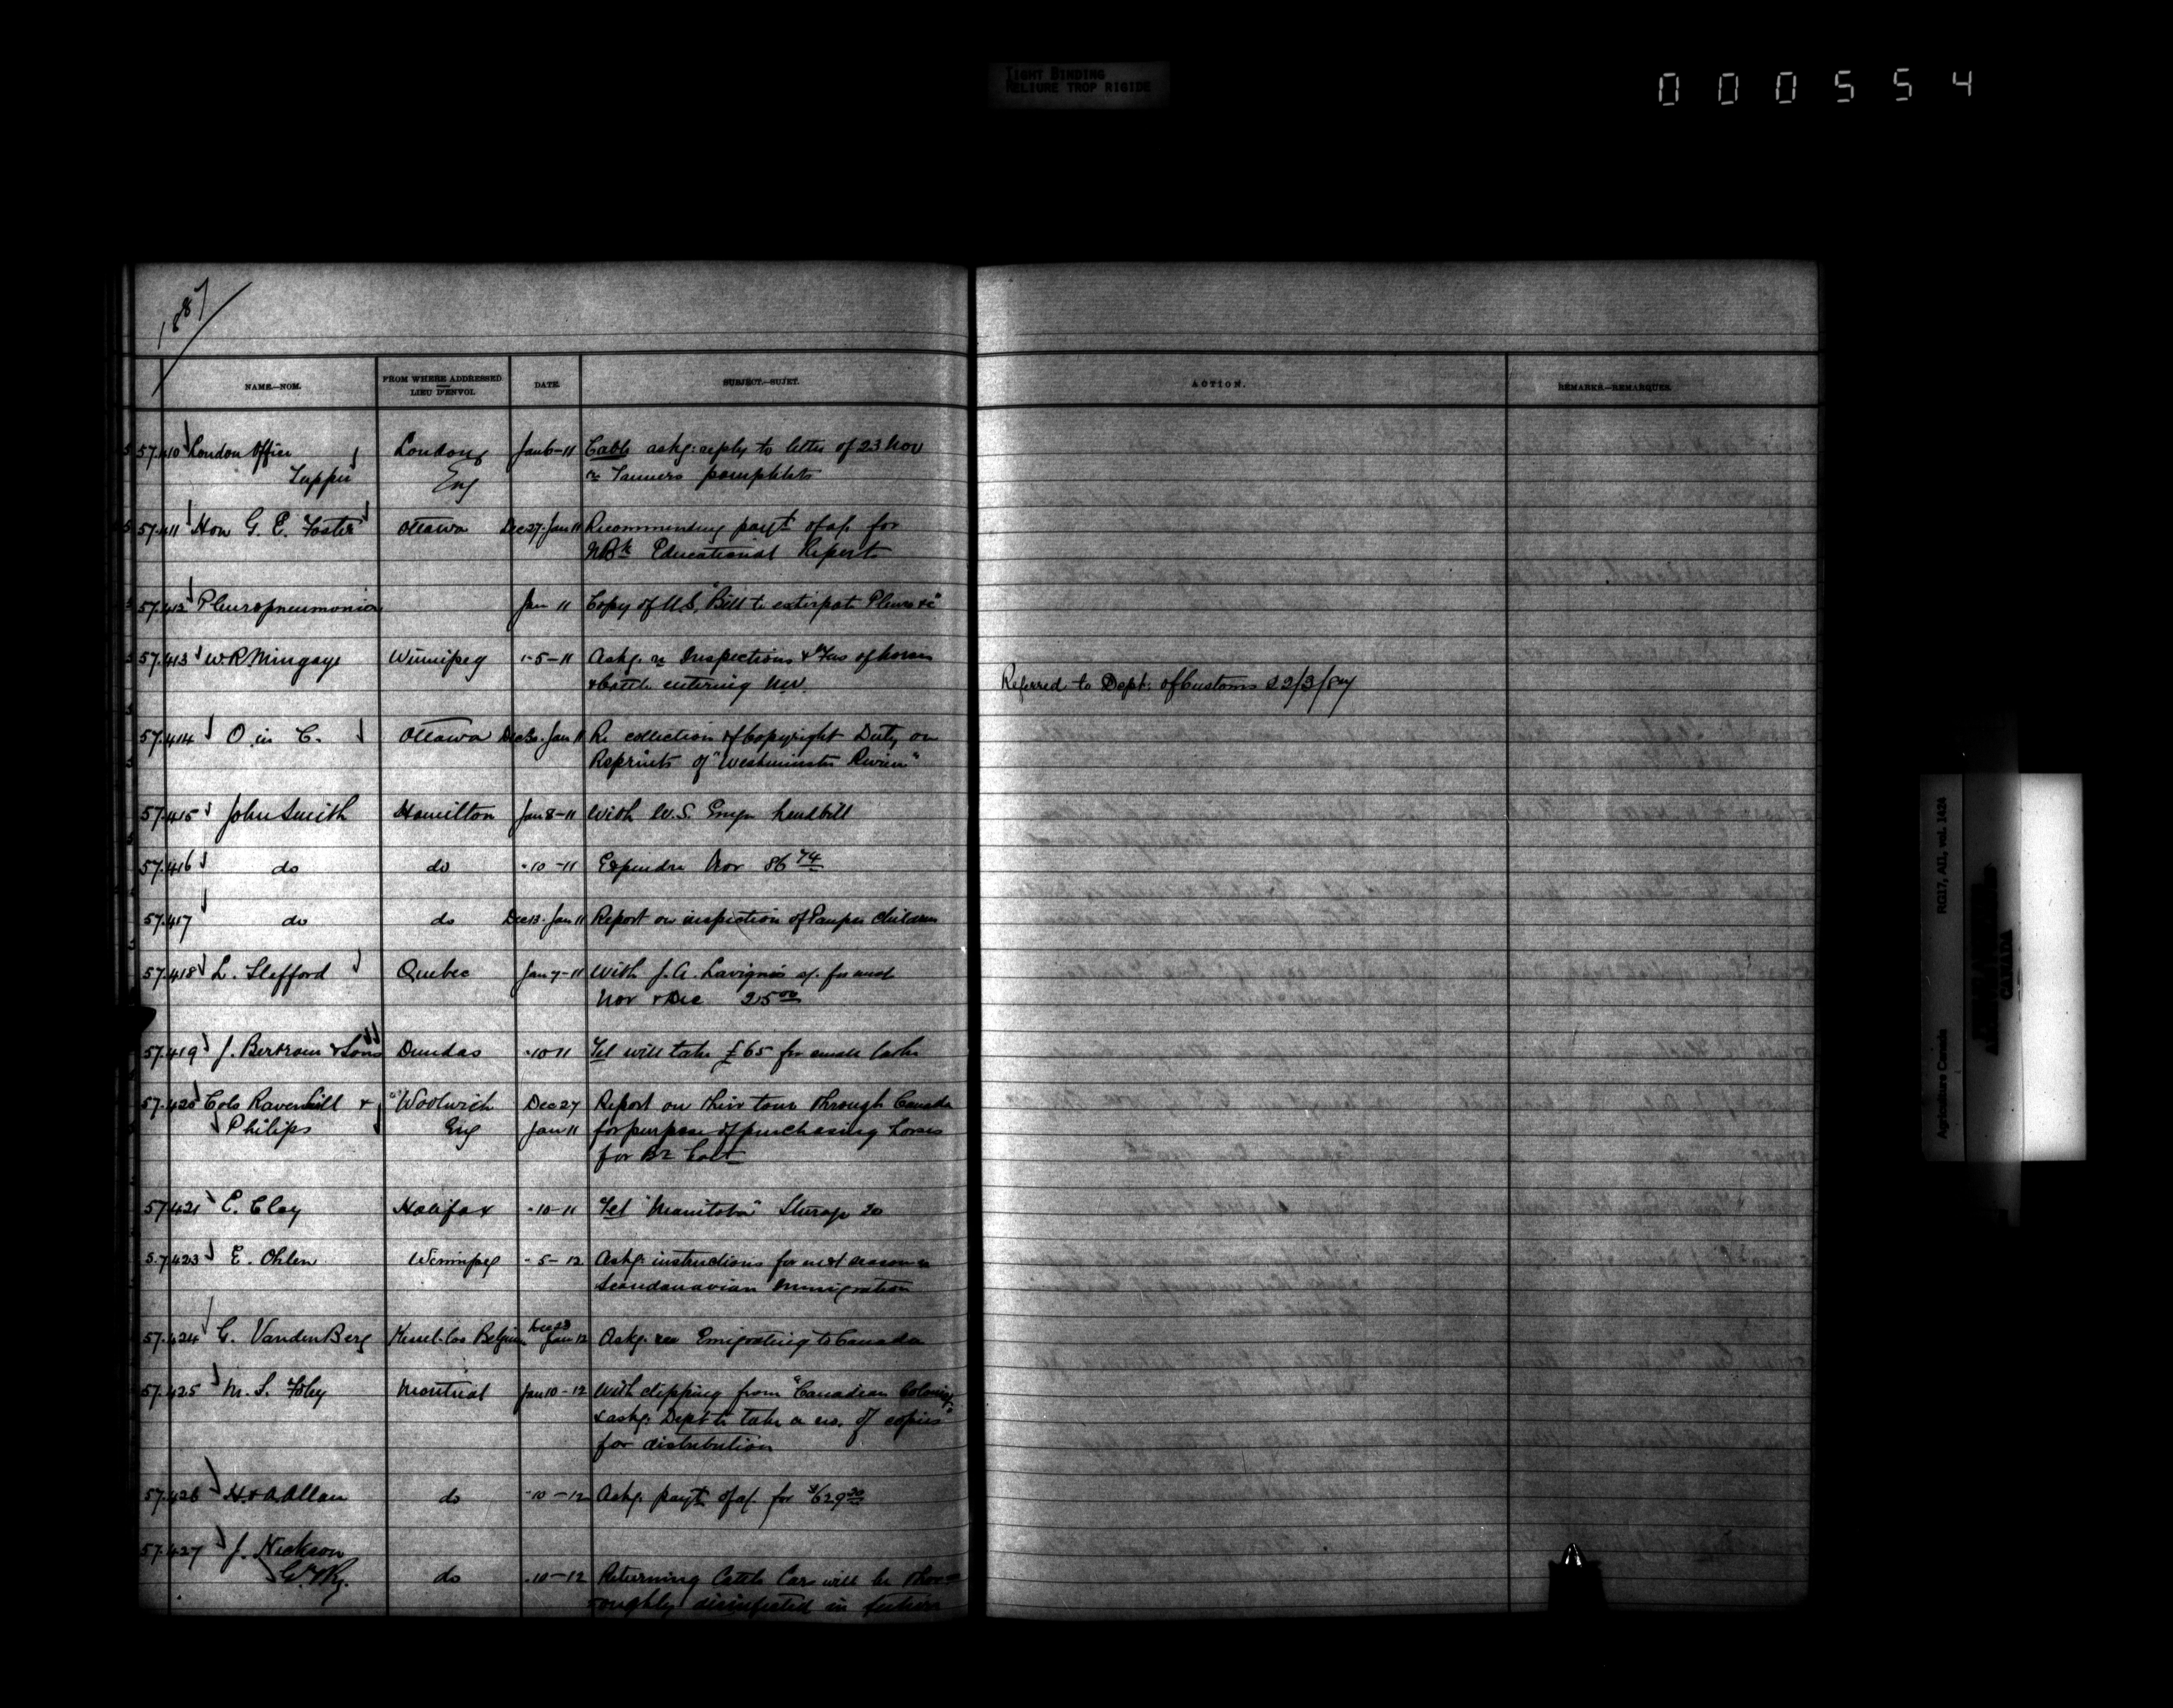 TIGHT BINDING
RELIURE TROP RIGIDE
000554
1887
NAME.—NOM. FROM WHERE ADDRESSED LIEU D'ENVOI. DATE. SUBJECT.—SUJET. ACTION. REMARKS.—REMARQUES.
57.410 London Office London Jan 6-11 Cable askg: reply to letter of 23 Nov
Tupper Eng re Tanners pamphlets
57.411 Hon G. E. Foster Ottawa Dec 27. Jan 11 Recommending payt of a/c for
NBk Educational Report
57.412 Pleuropneumonia Jan 11 Copy of U.S. "Bill to extirpate Pleuro &c"
57.413 W. R Mingaye Winnipeg "-5-11 Askg. re Inspections & Fees of horses
& Cattle entering NW. Referred to Dept: of Customs 22/3/87
57.414 O in C. Ottawa Dec 30. Jan 11 Re collection of Copyright Duty on
Reprints of "Westminster Review"
57.415 John Smith Hamilton Jan 8-11 With W.S. handbill
57.416 do do "-10-11 Expendre Nov 86 74
57.417 do do Dec 13. Jan 11 Report on inspection of Pauper Children
57.418 L. Stafford Quebec Jan 7-11 With J. A. Lavignes a/c for
Nov & Dec 25 00
57.419 J. Bertram & Sons Dundas "-10-11 Tel will take £65 for small lathe
57.420 Cols Ravenhill & Woolwich Dec 27 Report on their tour through Canada
Philips Eng Jan 11 for purpose of purchasing horses
for Br Govt
57.421 E. Clay Halifax "-10-11 Tel "Manitoba" Steerage 20
57.423 E. Ohlen Winnipeg "-5-12 Askg: instructions for next season re
Scandanavian Immigration
57.424 G. VandenBerg Kessel-Loo Belgium Dec 23 Jan 12 Askg. re Emigrating to Canada
57.425 M. S. Foley Montreal Jan 10-12 With clipping from "Canadian Colonist"
& askg: Dept to take a no. of copies
for distribution
57.426 H & A Allan do "-10-12 Askg payt of a/c for
57.427 J. Hickson
G.T.Ry. do "-10-12 Returning Cattle Cars will be thor-
oughly disinfected in future
RG17, A11, vol. 1424
Agriculture Canada
CANADA